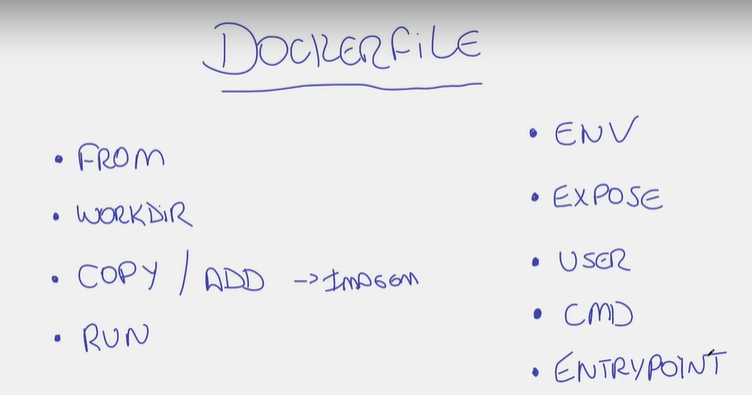 DOCKERFILE
• FROM
• WORKDIR
• COPY / ADD -> IMAGEM
• RUN
• ENV
• EXPOSE
• USER
• CMD
• ENTRYPOINT